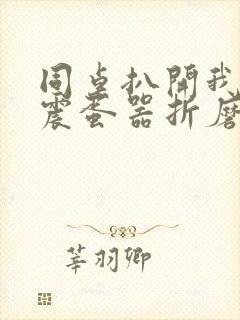 同桌扒開我
震蛋器折磨
莘羽卿